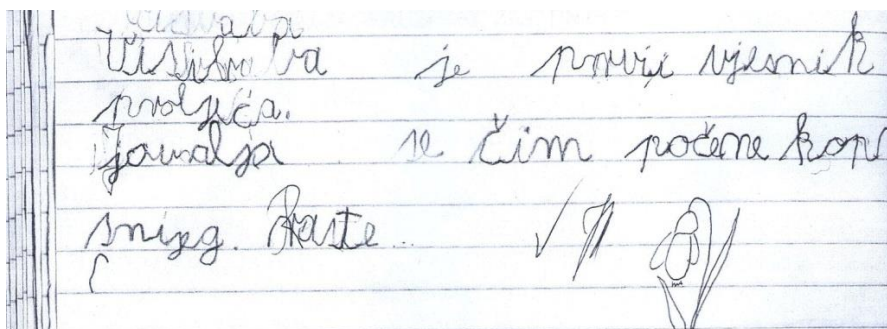 Visibaba je prvi vjesnik
proljeća.
Javalja se čim počene kop
snijeg. Raste...